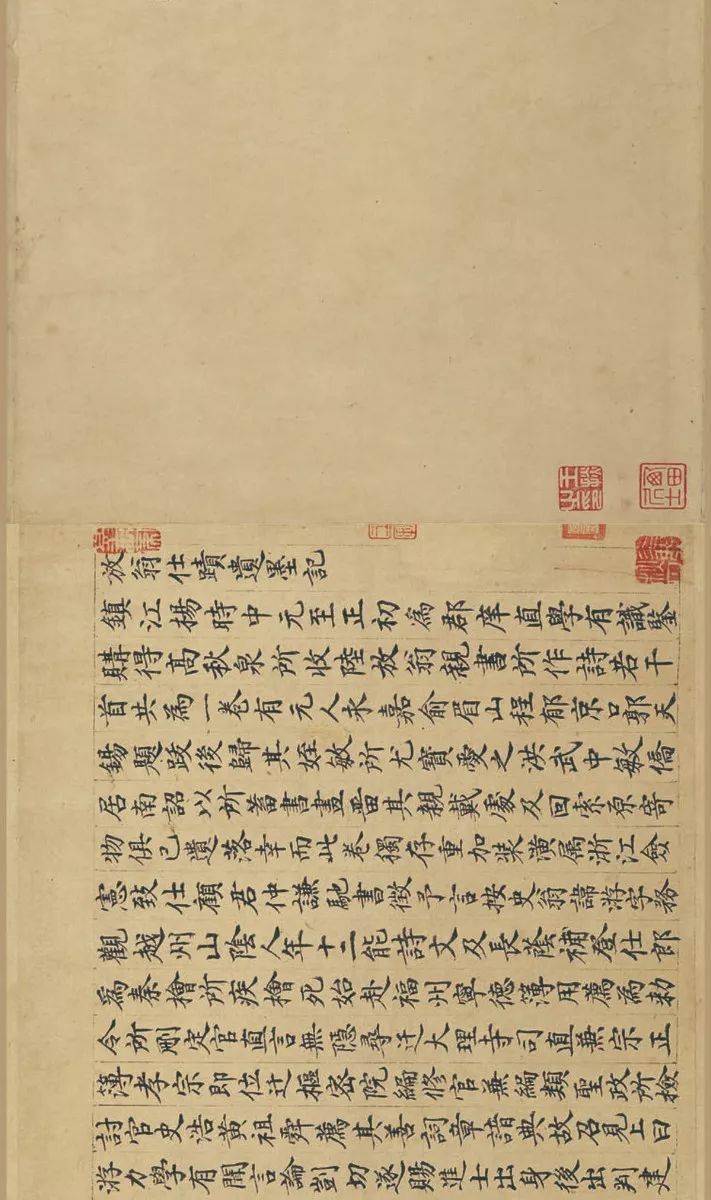 放翁仕蹟遺墨記
鎮江楊時中元至正初爲郡庠直學有識鑒
購得高秋泉所收陸放翁親書所作詩若干
首共爲一卷有元人永嘉俞眉山程郁京口郭天
錫題跋後歸其姪敏所尤寶愛之洪武中敏僑
居南詔以所蓄書畫畱其親戴處及回索原寄
物俱已遺落幸而此卷獨存重加裝潢属浙江僉
憲致仕顧君仲謙馳書徵予言按史翁諱游字務
觀越州山陰人年十二能詩文及長蔭補登仕郎
爲秦檜所疾檜死始赴福州寧德簿用薦爲勅
令所刪定官直言無隠尋迁大理寺司直兼宗正
簿孝宗即位迁樞密院編修官兼編類聖政所撿
討官史浩黄祖舜薦其善詞章諳典故召見上曰
游力學有聞言論剴切遂賜進士出身後出判建